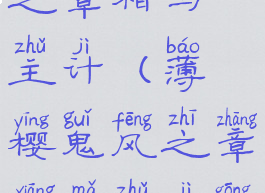 之章相马
zhǔ jì báo
主计（薄
yīng guǐ fēng zhī zhāng
樱鬼风之章
xiāng mǎ zhǔ jì gōng